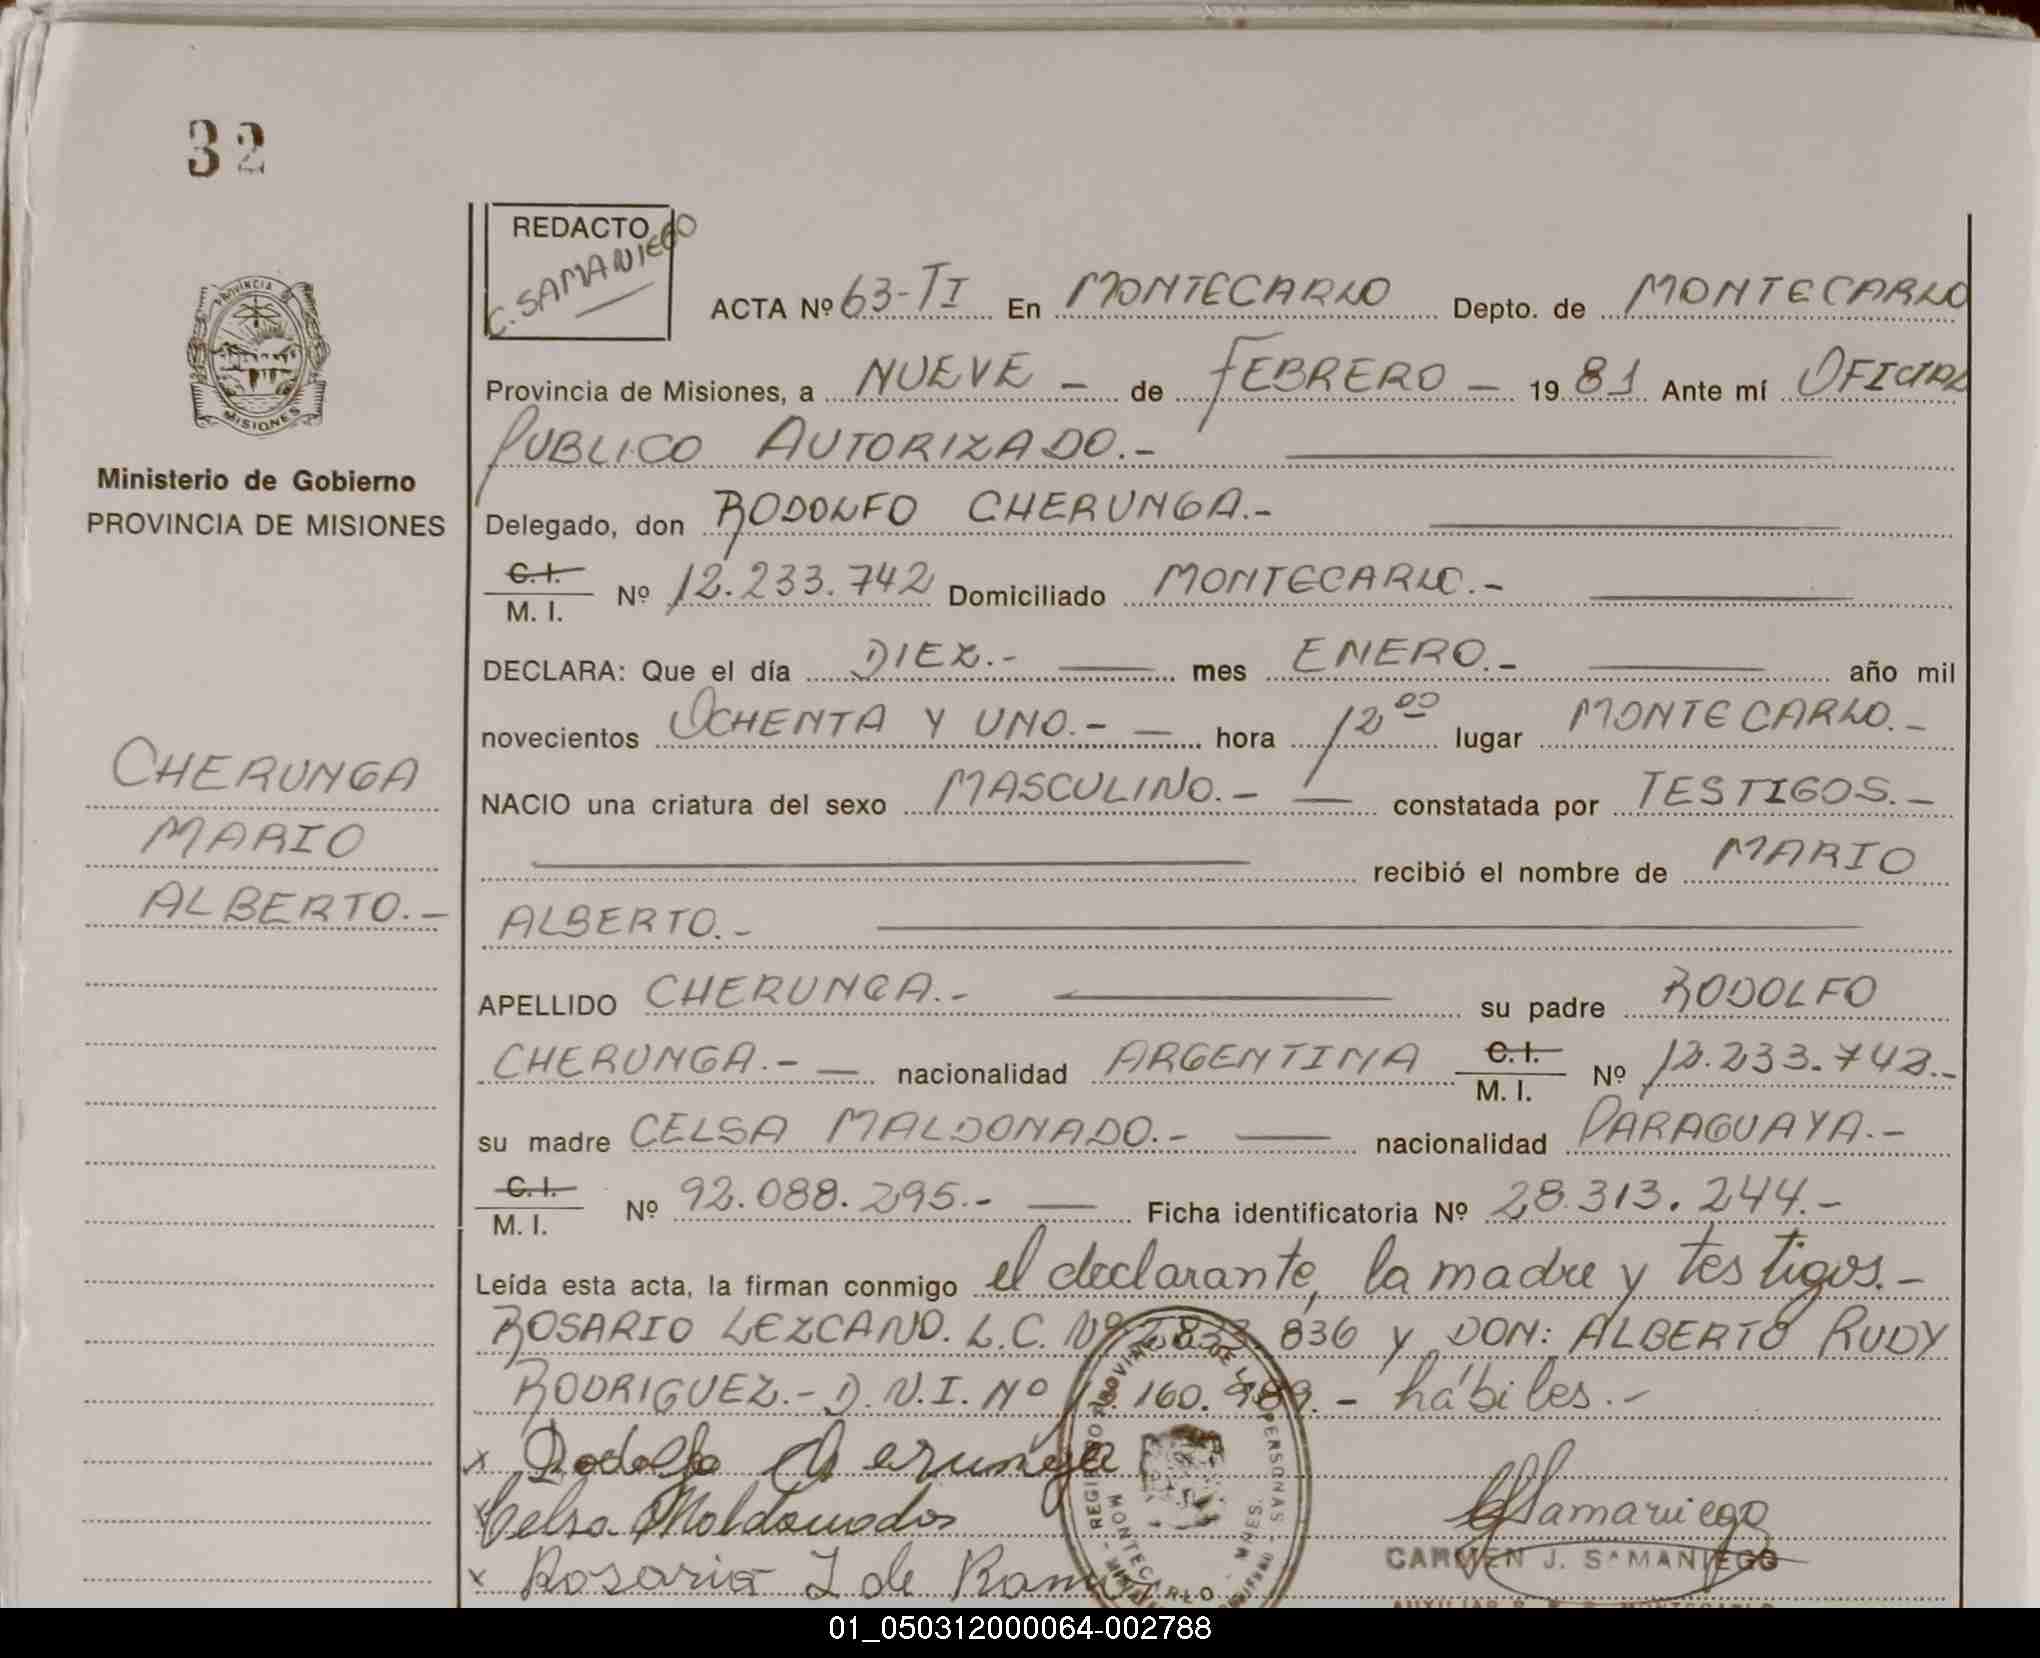 32
REDACTO
C. SAMANIEGO
PROVINCIA DE
MISIONES
Ministerio de Gobierno
PROVINCIA DE MISIONES
CHERUNGA
MARIO
ALBERTO.-
ACTA Nº 63-TI En MONTECARLO Depto. de MONTECARLO
Provincia de Misiones, a NUEVE - de FEBRERO - 1981 Ante mí OFICIAL
PUBLICO AUTORIZADO.-
Delegado, don RODOLFO CHERUNGA.-
C.I.
M. I. Nº 12.233.742 Domiciliado MONTECARLO.-
DECLARA: Que el día DIEZ.- mes ENERO.- año mil
novecientos OCHENTA Y UNO.- hora 12 00 lugar MONTECARLO.-
NACIO una criatura del sexo MASCULINO.- constatada por TESTIGOS.-
recibió el nombre de MARIO
ALBERTO.-
APELLIDO CHERUNGA.- su padre RODOLFO
CHERUNGA.- nacionalidad ARGENTINA C.I.
M. I. Nº 12.233.742.-
su madre CELSA MALDONADO.- nacionalidad PARAGUAYA.-
C.I.
M. I. Nº 92.088.295.- Ficha identificatoria Nº 28.313.244.-
Leída esta acta, la firman conmigo el declarante, la madre y testigos.-
ROSARIO LEZCANO. L.C. Nº 836 y DON: ALBERTO RUDY
RODRIGUEZ.- D.N.I. Nº 160. .- hábiles.-
x Rodolfo Cherunga
x Celsa Maldonado
x Rosario L de
Samaniego
CARMEN J. SAMANIEGO
MONTECARLO
01_050312000064-002788